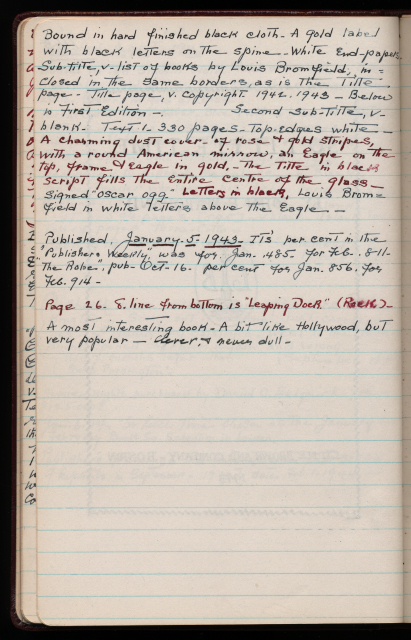 Bound in hard finished black cloth - A gold label
with black letters on the spine - White End-papers
Sub-title, v - list of books by Louis Bromfield, in =
closed in the same borders, as is the Title
page - Title page, v. Copyright. 1942. 1943 - Below
is First Edition -. Second Sub-title, v -
blank. Text 1 - 330 pages - Top-edges white -
A charming dust cover - of rose & gold stripes,
with a round American mirrow, an Eagle on the
top, frame & Eagle in gold, - The Title in black
script fills the Entire Centre of the glass -
signed "Oscar Ogg" Letters in black, Louis Brom=
field in white letters above the Eagle -
Published, January - 5 - 1943 - It's per cent in the
"Publishers Weekly", was for Jan. .485. for Feb. .811 -
The Robe", pub - Oct - 16. per cent for Jan. 856. for
Feb. 914 -
Page 26. 8. line from bottom is "leaping Dock." (Rock) -
A most interesting book - A bit like Hollywood, but
very popular - clever, & never dull -